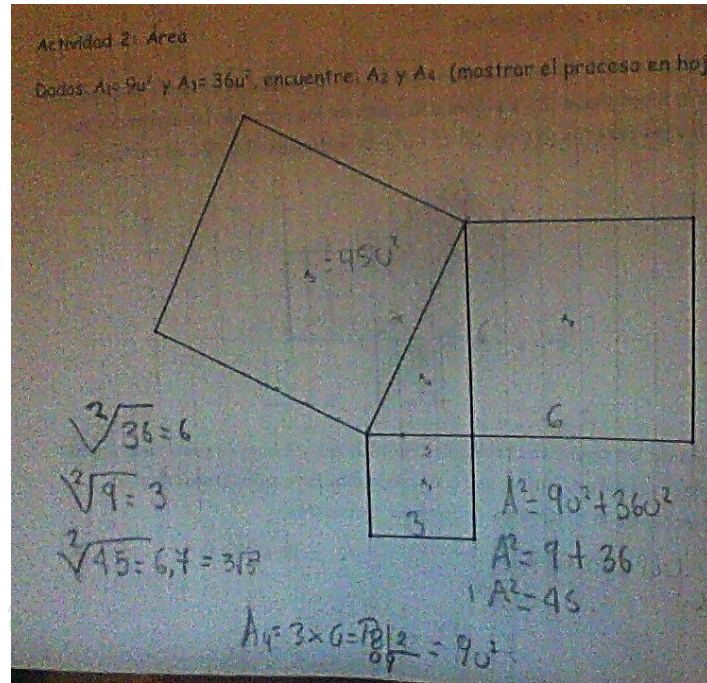 Actividad 2: Área
Dados: A₁= 9u² y A₃= 36u², encuentre: A₂ y A₄ (mostrar el proceso en hoj
= 45u²
6
3
²√36 = 6
²√9 = 3
²√45 = 6,7 = 3√5
A² = 9u² + 36u²
A² = 9 + 36
A² = 45
A₄ = 3 × 6 = 18 |2 = 9u²